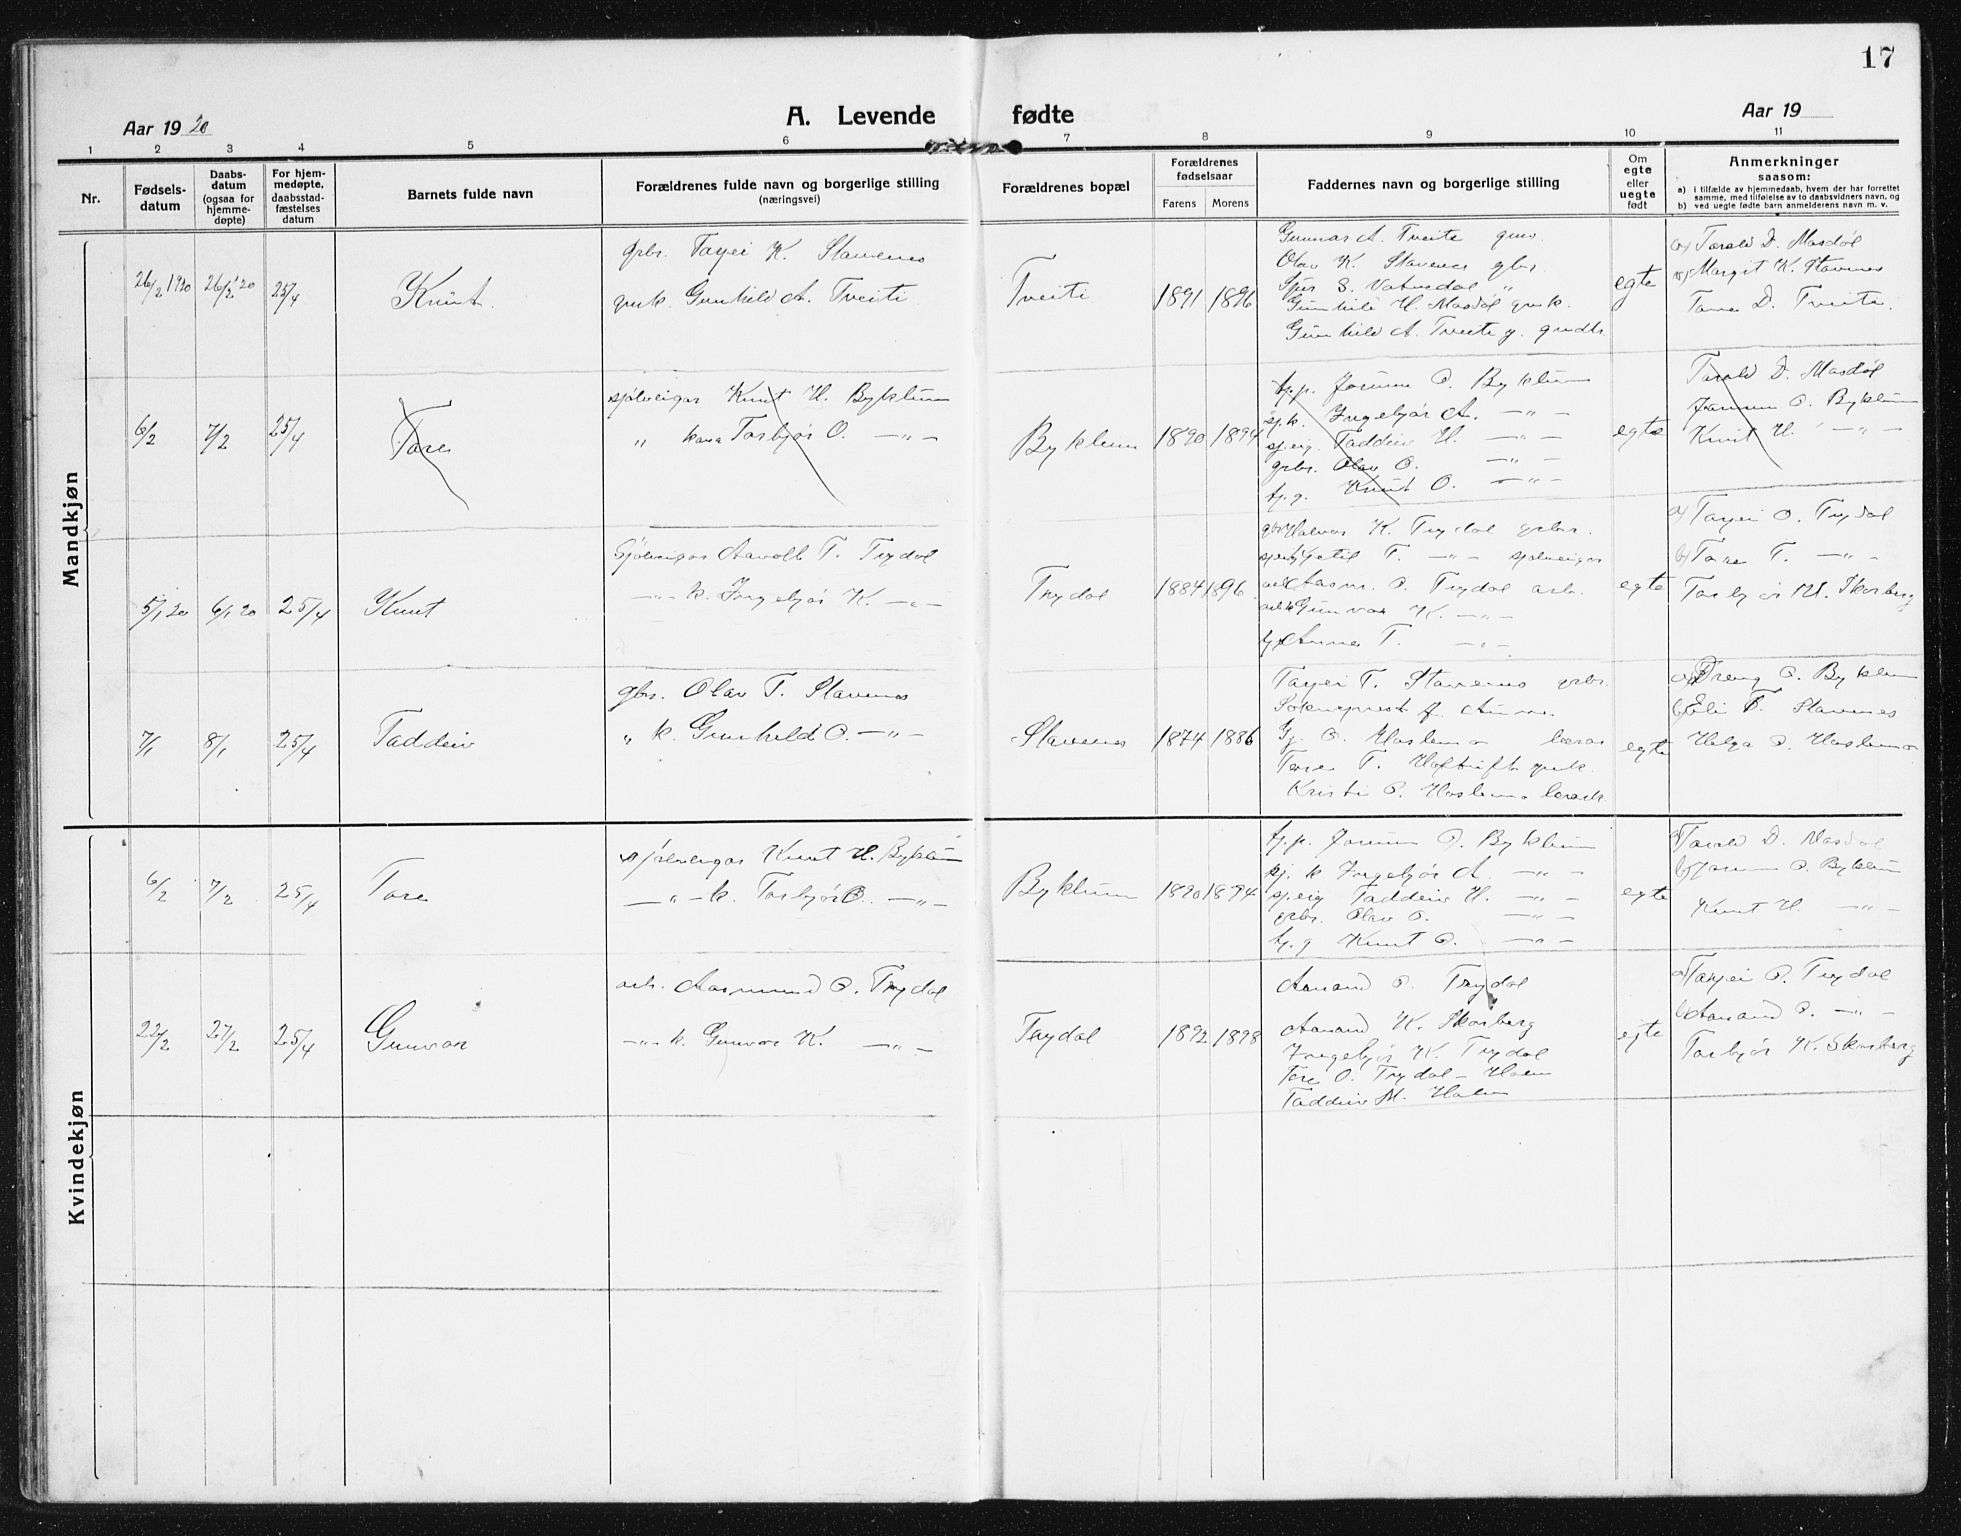 17
Aar 1920
A. Levende fødte
Aar 19
1 2 3 4 5 6 7 8 9 10 11
Nr.
Fødsels-
datum
Daabs-
datum
(ogsaa for
hjemme-
døpte)
For hjem-
medøpte,
daabsstad-
fæstelses
datum
Barnets fulde navn
Forældrenes fulde navn og borgerlige stilling
(næringsvei)
Forældrenes bopæl
Forældrenes
fødselsaar
Farens Morens
Faddernes navn og borgerlige stilling
Om
egte
eller
uegte
født
Anmerkninger
saasom:
a) i tilfælde av hjemmedaab, hvem der har forrettet
samme, med tilføielse av to daabsvidners navn, og
b) ved uegte fødte barn anmelderens navn m. v.
Mandkjøn
26/2 1920 26/2 '20 25/4
Knut
gbr. Tarjei K. Stavenes
Gunhild A. Tveite
Tveite
1891 1896
Gunnar A. Tveite
Olav K. Stavenes gbr.
S. Vatnedal "
Gunhild H. Mosdøl
Gunhild A. Tveite
egte
Torald D. Mosdøl
Margit K. Stavenes
Tone D. Tveite
6/2 7/2 25/4
Tore
sjøleeigar Knut H. Byklum
" kona Torbjør O. —"—
Byklum
1890 1894
tj.p. Jorunn O. Byklum
sj.k. Ingebjør A. —"—
sj.eig. Taddeiv H. —"—
gbr. Olav O. —"—
tj.g. Knut O. —"—
egte
Torald D. Mosdøl
Jorunn O. Byklum
Knut H. —"—
5/1 20 6/1 20 25/4
Knut
Sjøleeigar Aavolt T. Trydal
—"— k. Ingebjør K. —"—
Trydal
1884 1896
Halvor K. Trydal gbr.
Ketil T. —"— sjøleeigar
Aasm. O. Trydal arb.
Gunvor K. —"—
Anne T. —"—
egte
a) Tarjei O. Trydal
b) Tore T. —"—
Torbjør K. Skarberg
7/1 8/1 25/4
Taddeiv
gbr. Olav T. Stavenes
" k. Gunhild O. —"—
Stavenes
1874 1886
Tarjei T. Stavenes gbr.
Sokneprest
Gj. O. Haslemo lærar
Tore T.
Kristi O. Haslemo lærark.
egte
a) Dreng O. Byklum
b) Eli T. Stavenes
Helga O. Haslemo
Kvindekjøn
6/2 7/2 25/4
Tore
sjøleeigar Knut H. Byklum
—"— k. Torbjør O. —"—
Byklum
1890 1894
tj.p. Jorunn O. Byklum
sj. k Ingebjør A. —"—
sj.eig Taddeiv H. —"—
gbr. Olav O. —"—
tj.g Knut O. —"—
egte
a) Torald D. Mosdøl
b) Jorunn O. Byklum
Knut H. —"—
22/2 27/2 25/4
Gunvor
arb. Aasmund O. Trydal
—"— k. Gunvor K. —"—
Trydal
1892 1898
Aanand O. Trydal
Aanand K. Skarberg
Ingebjør K. Trydal
Tore O. Trydal
Taddeiv M.
egte
a) Tarjei O. Trydal
b) Aanand O. —"—
Torbjør K. Skarberg